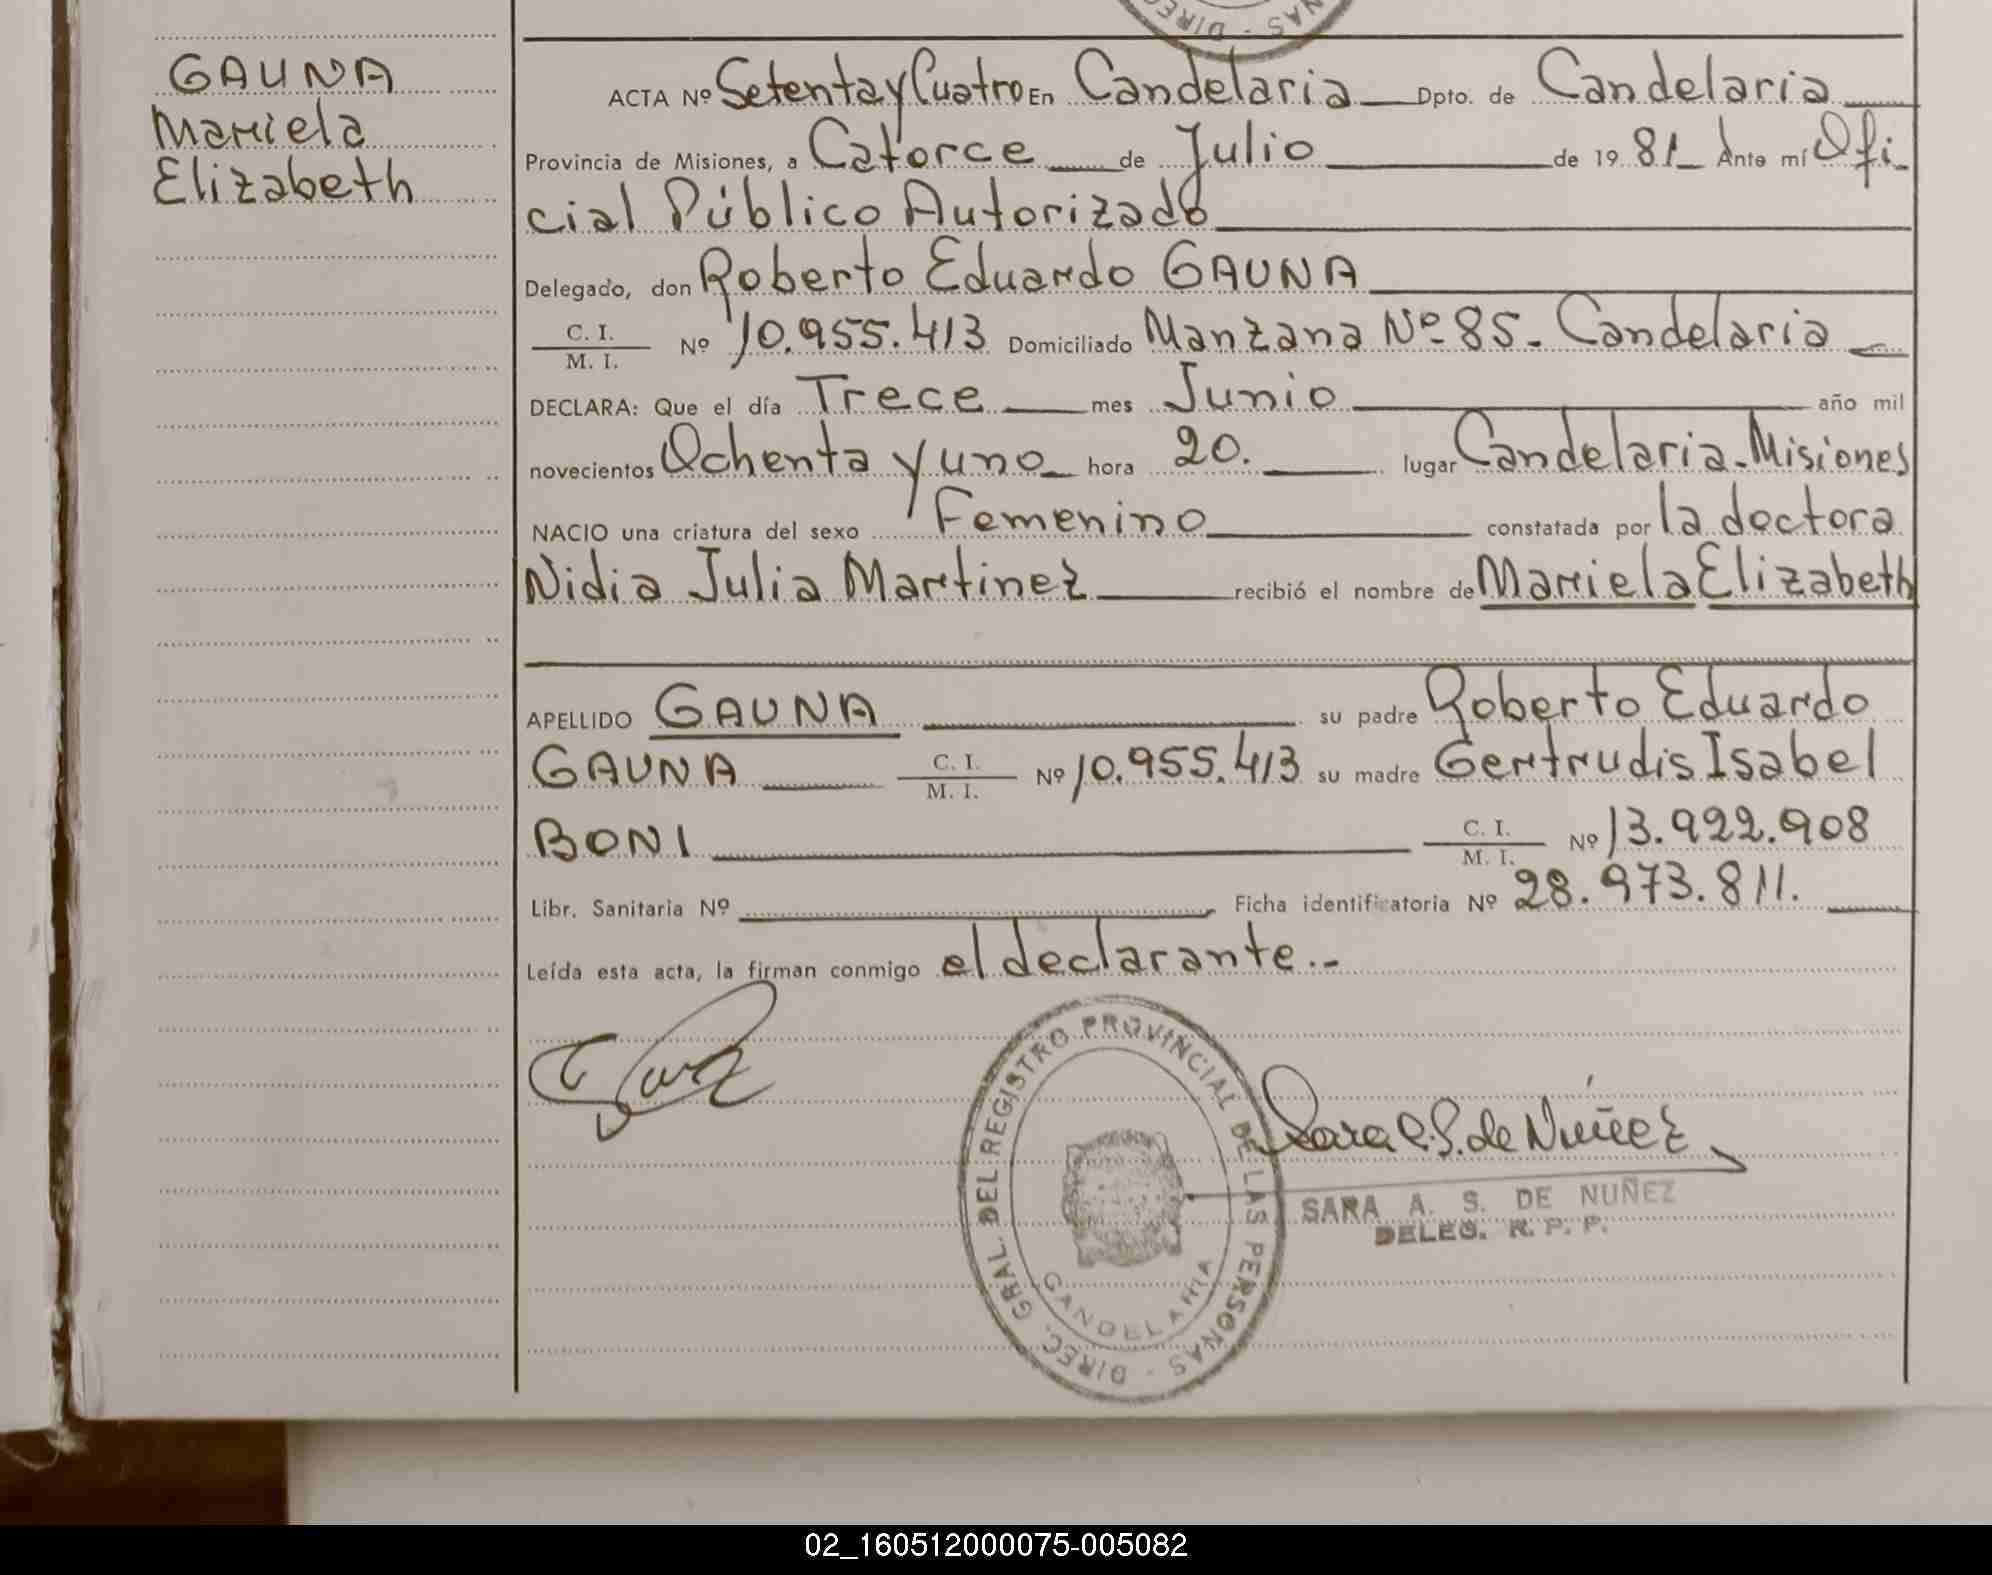 NAS - DIREC
GAUNA
Mariela
Elizabeth
ACTA Nº Setenta y Cuatro En Candelaria Dpto. de Candelaria
Provincia de Misiones, a Catorce de Julio de 19 81 Ante mí Ofi
cial Público Autorizado
Delegado, don Roberto Eduardo GAUNA
C. I.
M. I. Nº 10.955.413 Domiciliado Manzana Nº 85 - Candelaria
DECLARA: Que el día Trece mes Junio año mil
novecientos Ochenta y uno hora 20. lugar Candelaria - Misiones
NACIO una criatura del sexo Femenino constatada por la doctora
Nidia Julia Martinez recibió el nombre de Mariela Elizabeth
APELLIDO GAUNA su padre Roberto Eduardo
GAUNA C. I. M. I. Nº 10.955.413 su madre Gertrudis Isabel
BONI C. I. M. I. Nº 13.922.908
Libr. Sanitaria Nº Ficha identificatoria Nº 28.973.811.
Leída esta acta, la firman conmigo el declarante.-
DIREC. GRAL. DEL REGISTRO PROVINCIAL DE LAS PERSONAS -
CANDELARIA
Sara A. S. de Nuñez
SARA A. S. DE NUÑEZ
DELEG. R. P. P.
02_160512000075-005082